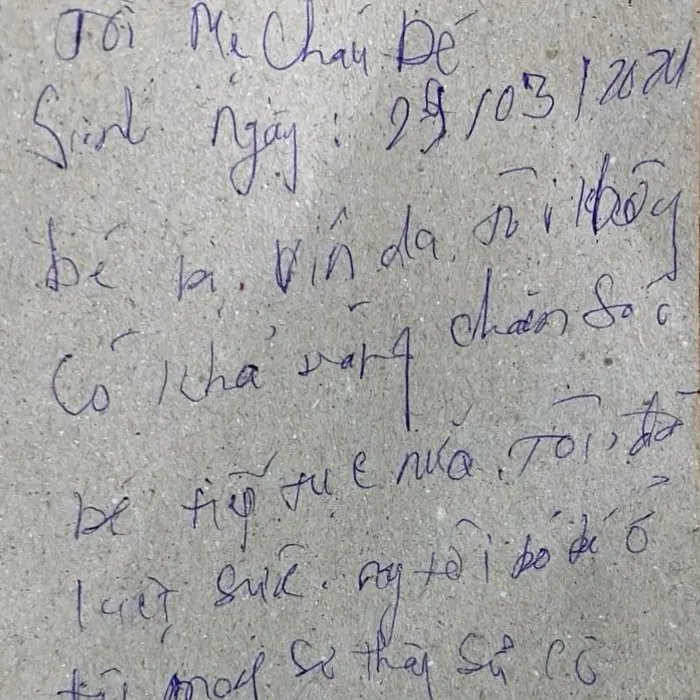 Tôi Mẹ Cháu Bé
Sinh ngày: 29/03/2024
bé bị. Viên da. Tôi không
Có khả năng chăm Sóc
bé tiếp tục nữa. Tôi, đã
kiệt sức. nay tôi bỏ bé ở
đây mong Sư thầy